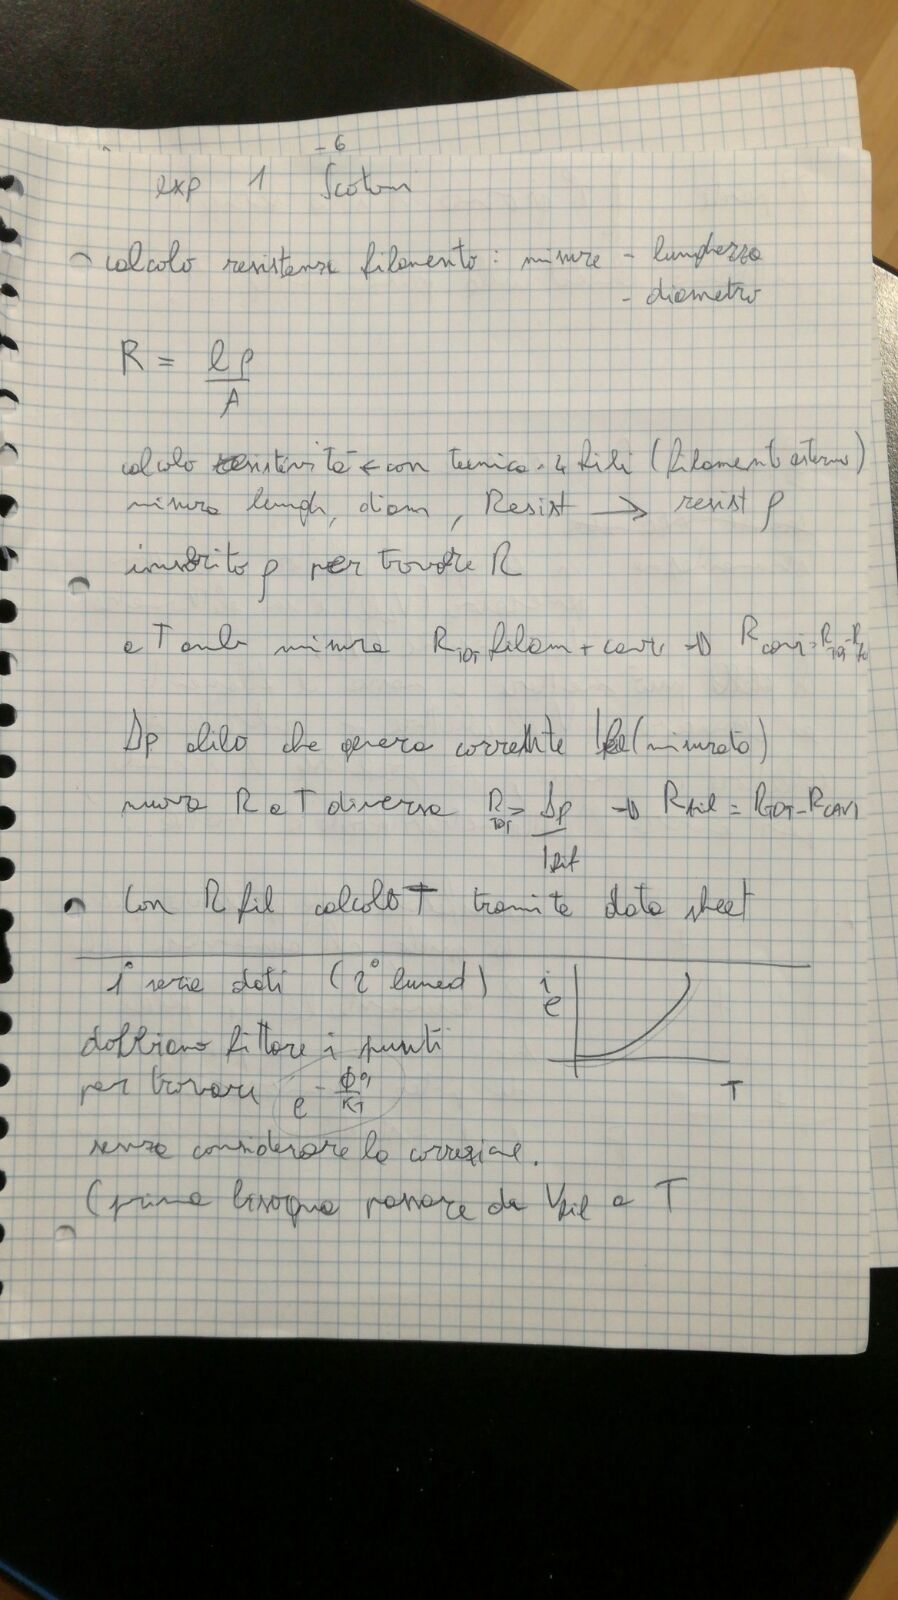 -6
exp 1 Scotoni
calcolo resistenza filamento: misure - lunghezza
- diametro
R = lρ/A
calcolo resistività ← con tecnica 4 fili (filamento esterno)
misura lungh, diam, Resist → resist ρ
inserito ρ per trovare R
a T amb misura R_TOT filam + cavi ⇒ R_cavi = R_TOT - R_fil
Δp dato che genera corrente (misurato)
nuova R a T diversa R_TOT = Δp/I_fil ⇒ R_fil = R_TOT - R_CAVI
Con R fil calcolo T tramite data sheet
1° serie dati (2° luned) i e
dobbiamo fittare i punti
per trovare e^(-Φ/KT) T
senza considerare la correzione.
(prima bisogna passare da V_fil a T